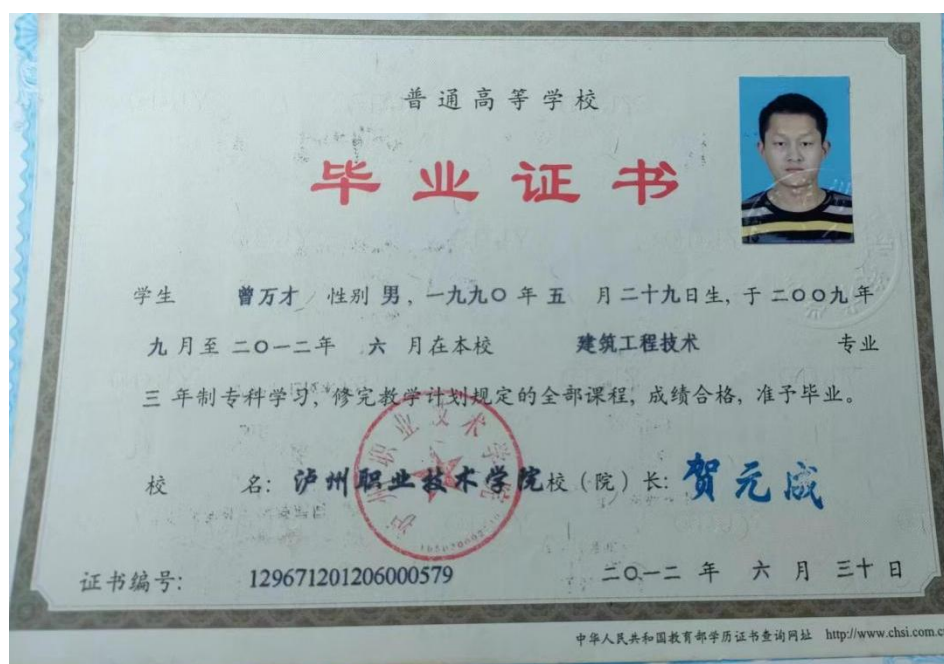 普通高等学校
毕业证书
学生 曾万才 性别 男，一九九〇年 五 月二十九日生，于二〇〇九年
九月至二〇一二年 六 月在本校 建筑工程技术 专业
三 年制专科学习，修完教学计划规定的全部课程，成绩合格，准予毕业。
校 名：泸州职业技术学院校（院）长：贺元成
泸州职业技术学院
证书编号：129671201206000579 二〇一二 年 六 月 三十 日
中华人民共和国教育部学历证书查询网址 http://www.chsi.com.c